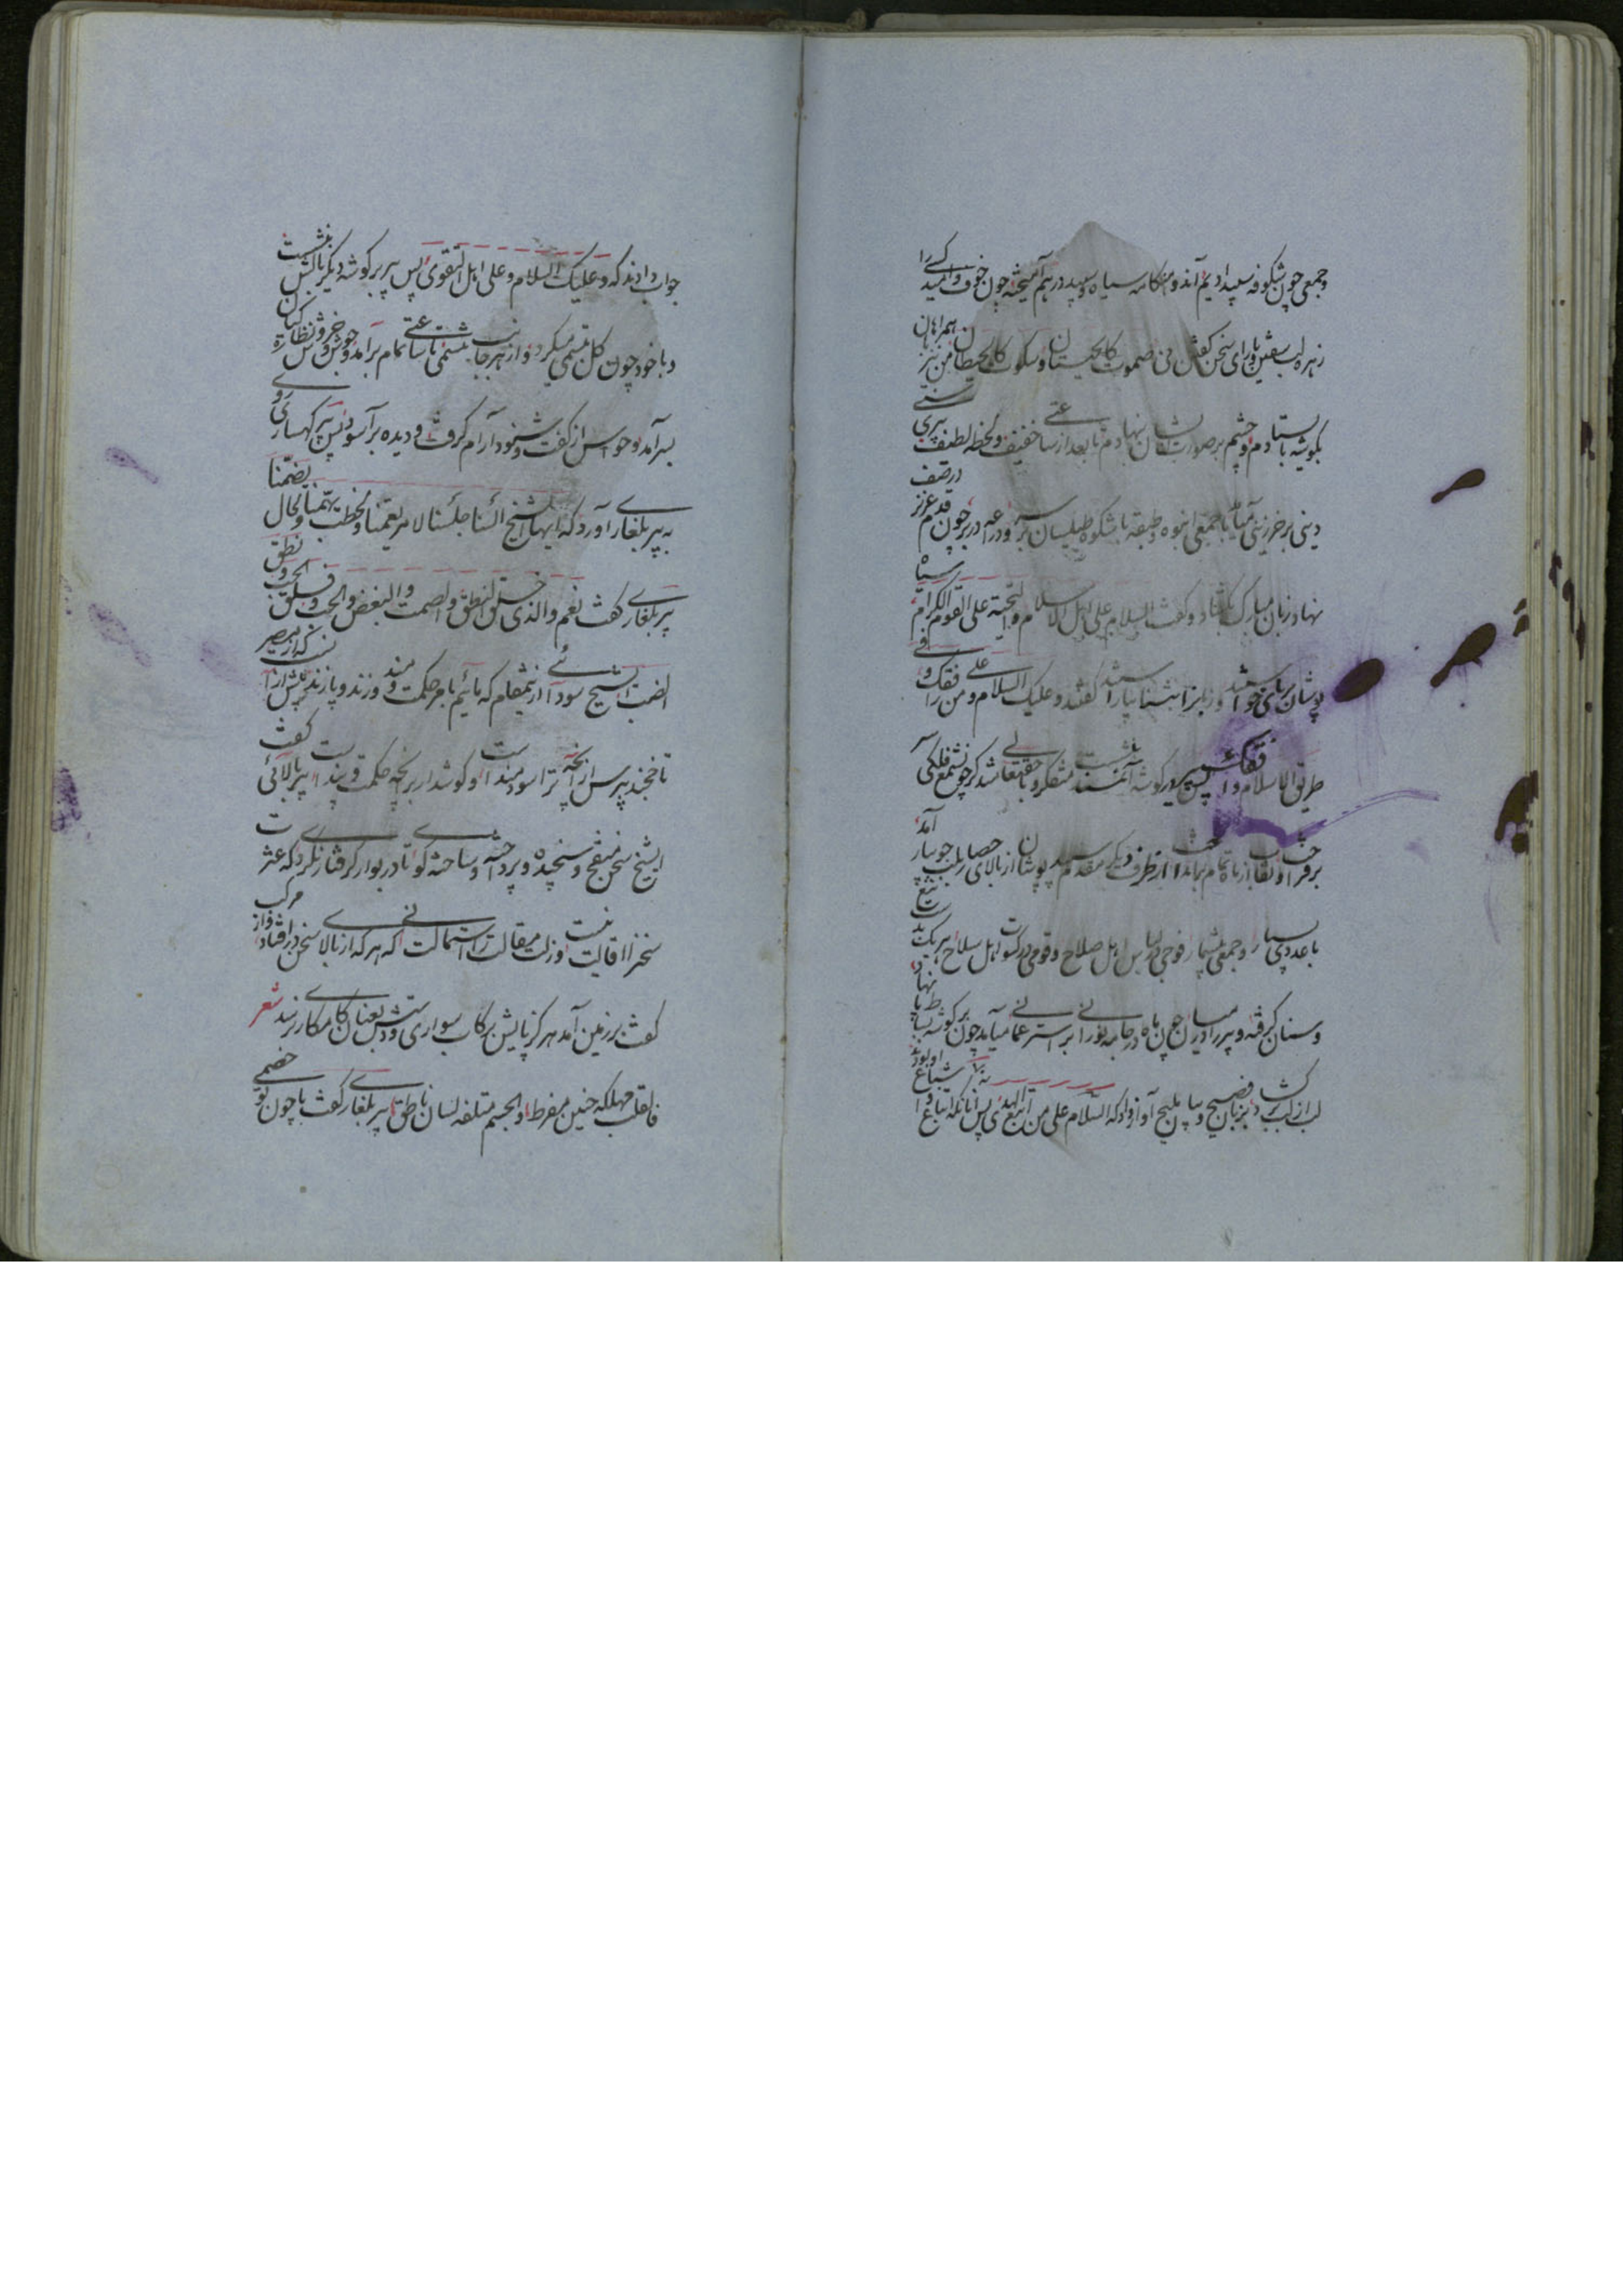 وجمعی چون شکوفه سپید ادیم آمدند و هنگامه سیاه و سپید در هم آمیخته چون خوف و امید کسی را
زهره لب سفتن و یارای سخن گفتن نی صموت کالحیتان و سکوت کالحیطان من نیز همراهان
بگوشه باستادم و چشم بر صورت ایشان نهادم تا بعد از ساعتی خفیف و لحظه لطیف پیری سنی
دینی برخر زینی میآمد با جمعی انبوه و طبقه باشکوه طیلسان بر سر و دراعه در بر چون قدم عزیز در صف
نهاد زبان مبارک بگشاد و گفت السلام علی اهل الاسلام و التحیة علی القوم الکرام سیاه
پوشان برپای خواستند و زبانرا بثنا بیاراستند گفتند و علیک السلام و من رافقک و علی فی
طریق الاسلام وافقک پس پیر در گوشه بنشست متفکر و باحقیقه شد گرد چون شمع فلکی
برفراخت و نقاب از ماه تمام بینداخت از طرف دیگر مقدم سپید پوشان از بالای حصار بلب جویبار آمد
با عددی بسیار و جمعی بیشمار فوجی در لباس اهل صلاح و قومی در کسوت اهل سلاح هر یک بدست تیغ
و سنان گرفته و پیر را در میان چون ماه در جامه نورانی بر استر عمانی میآمد چون برگوشه بساط پا نهاد
لب از لب برداشت بزبان فصیح و بیان ملیح آواز داد که السلام علی من اتبع الهدی پس آنانکه اتباع و اشیاع او بودند
جواب دادند که و علیک السلام و علی اهل التقوی پس پیر بر گوشه دیگر بالش بنشست
و با خود چون گل تبسمی میکرد و از هر جانب تنسمی تا ساعتی تمام برآمد و جوش و خروش نظارگیان
بسر آمد و حواس از گفت و شنود آرام گرفت و دیده بر آسود پس پیر کهساری روی
به پیر بلغاری آورد که ایها الشیخ السنا جلسنا لامر یعمنا و لخطب یهمنا و لحال یضمنا
پیر بلغاری گفت نعم و الذی خلق النطق و الصمت و البغض و الحب و فلق الحب و نطق
الضب
تا خجند بپرس از آنچه ترا سودمند است و گوشدار بر آنچه حکمت و پند است پیر بالائی گفت
ایشیخ سخن منقح و سنجیده و پرداخته و ساخته گوی تا در بوار گرفتار نگردی که عثرت
سخن را اقالت نیست و زلت مقالت را استمالت نی که هر که از بالای سخن در افتاد و از مرکب
گفت بر زمین آمد هرگز پایش برکاب سواری و دستش بعنان کامکاری نرسد شعر
فالقلب مهلکه حنین مفرط و الجسم متلفه لسان ناطق پیر بلغاری گفت با چون تو خصمی